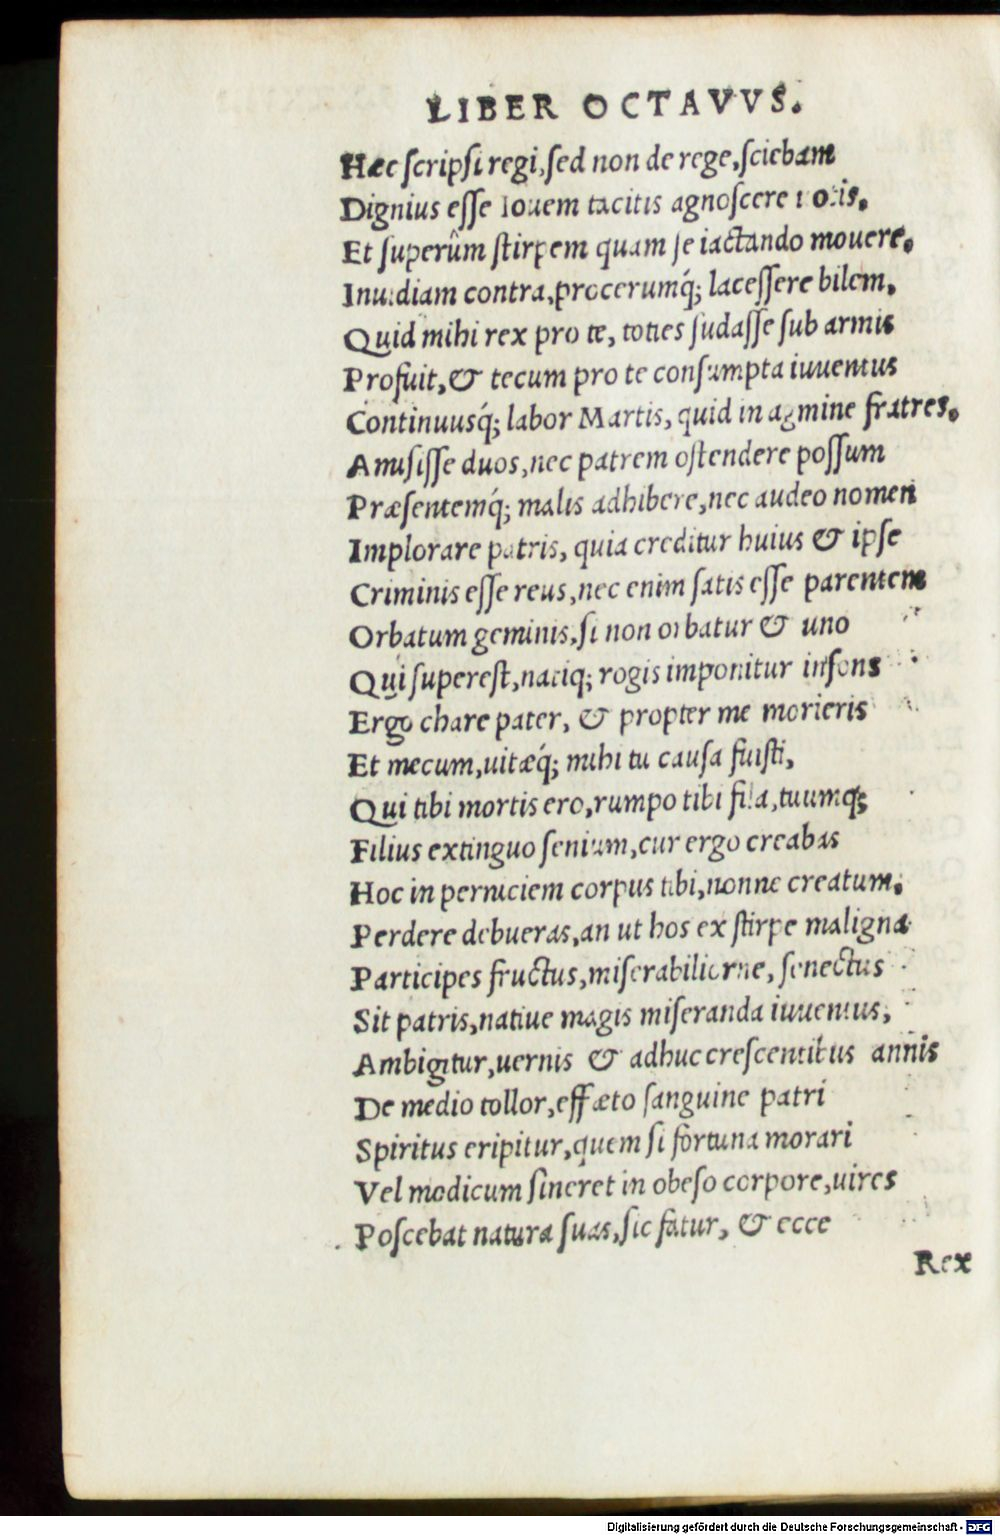 LIBER OCTAVVS.
Hæc ſcripſi regi, ſed non de rege, ſciebam
Dignius eſſe Iouem tacitis agnoſcere uotis.
Et ſuperûm ſtirpem quam ſe iactando mouere.
Inuidiam contra, procerumq́; laceſſere bilem.
Quid mihi rex pro te, toties ſudaſſe ſub armis
Profuit, & tecum pro te conſumpta iuuentus
Continuusq́; labor Martis, quid in agmine fratres.
Amiſiſſe duos, nec patrem oſtendere poſſum
Præſentemq́; malis adhibere, nec audeo nomen
Implorare patris, quia creditur huius & ipſe
Criminis eſſe reus, nec enim ſatis eſſe parentem
Orbatum geminis, ſi non orbatur & uno
Qui ſupereſt, natiq; rogis imponitur inſons
Ergo chare pater, & propter me morieris
Et mecum, uitæq́; mihi tu cauſa fuiſti,
Qui tibi mortis ero, rumpo tibi fila, tuumq;
Filius extinguo ſenium, cur ergo creabas
Hoc in perniciem corpus tibi, nonne creatum.
Perdere debueras, an ut hos ex ſtirpe maligna
Participes fructus, miſerabiliorne, ſenectus
Sit patris, natiue magis miſeranda iuuentus,
Ambigitur, uernis & adhuc creſcentibus annis
De medio tollor, effæto ſanguine patri
Spiritus eripitur, quem ſi fortuna morari
Vel modicum ſineret in obeſo corpore, uires
Poſcebat natura ſuas, ſic fatur, & ecce
Rex
Digitalisierung gefördert durch die Deutsche Forschungsgemeinschaft - DFG